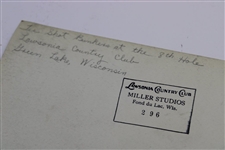 Tee Shot Bunkers at the 8th Hole
Lawsonia Country Club
Green Lake Wisconsin
LAWSONIA COUNTRY CLUB
MILLER STUDIOS
Fond du Lac, Wis.
296